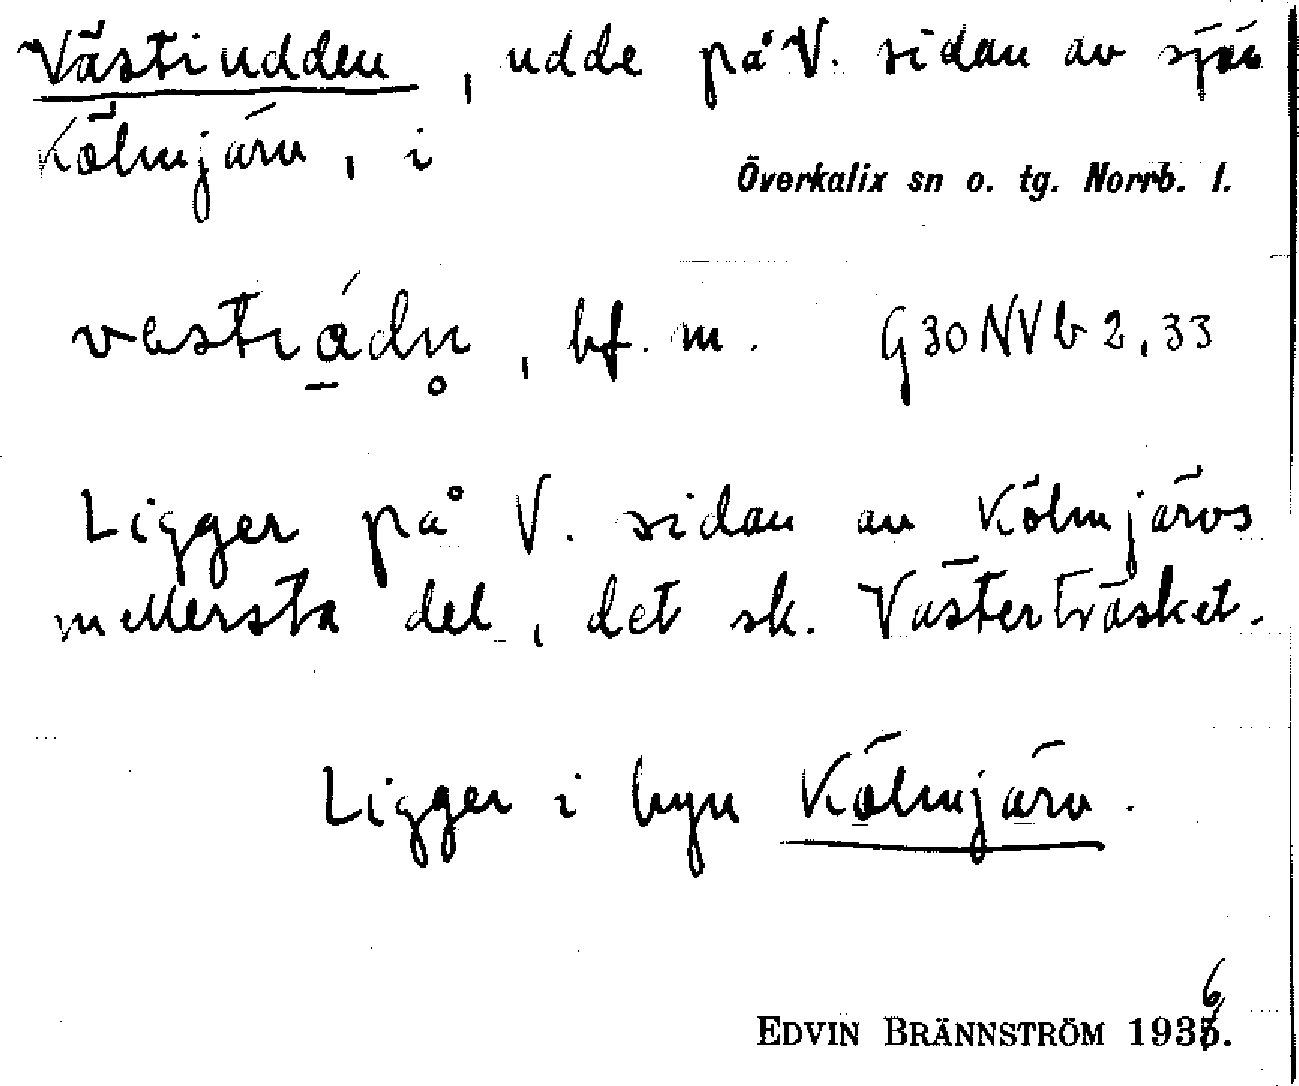 Västiudden, udde på V. sidan av sjön
Kölmjärv, i
Överkalix sn o. tg. Norrb. l.
vestiádn̥, bf. m. G30NVb2,33
Ligger på V. sidan av Kölmjärvs
mellersta del, det sk. Västerträsket.
Ligger i byn Kölmjärv.
EDVIN BRÄNNSTRÖM 1936.